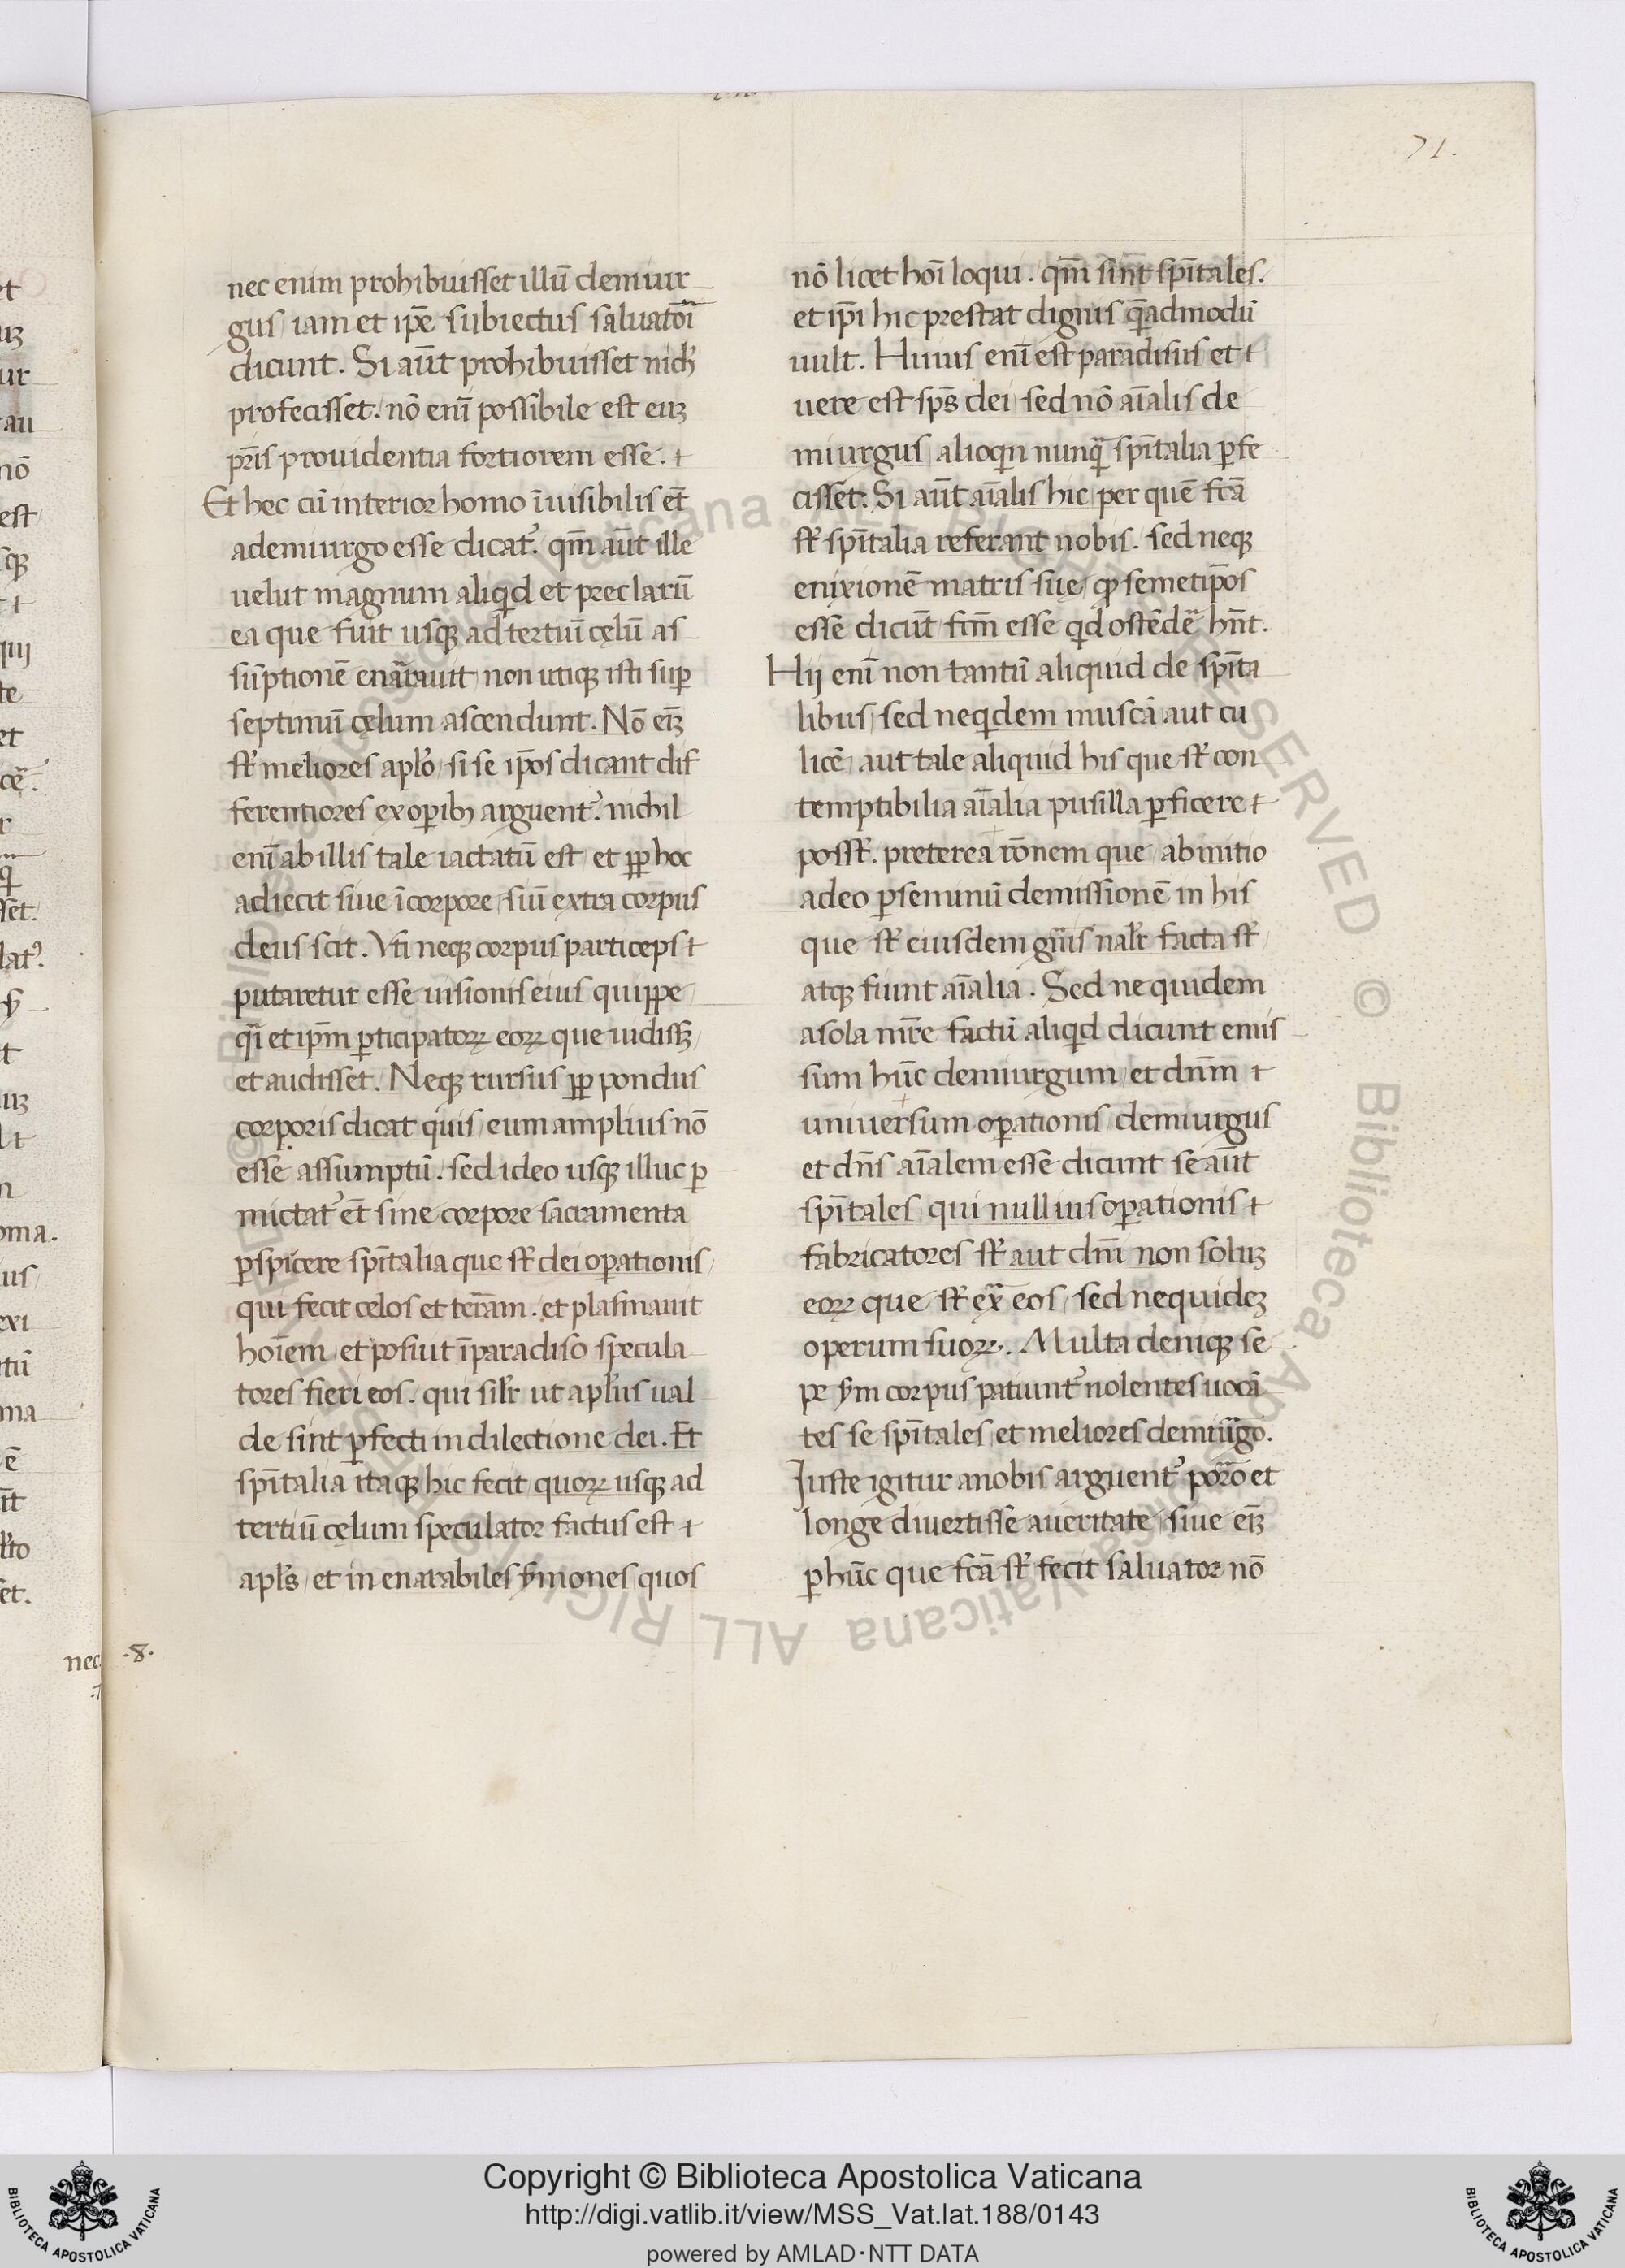 71.
nec enim prohibuisset illū demiur
gus iam et ip̄e subiectus saluatori
dicunt. Si aūt prohibuisset nich'
profecisset. nō enī possibile est euꝫ
pr̄is prouidentia fortiorem esse. ⁊
Et hec cū interior homo īuisibilis et̄
ademiurgo esse dicat᷒. qm̄ aūt ille
uelut magnum aliqid et preclarū
ea que fuit usqꝫ ad tertiuī cęlū as
sūptionē enarrauit non utiqꝫ isti suꝑ
septimuī cęlum ascendunt. Nō eiꝫ
st' meliores aplo' si se ip̄os dicant dif
ferentiores ex oꝑibꝫ arguent᷒. nichil
enī ab illis tale iactatū est et ꝓp hoc
adiecit siue ī corpore siū extra corpus
deus scit. Vti neqꝫ corpus particeps ⁊
putaretur esse uisionis eius quippe
qi et ip̄m ꝑticipatoꝝ eoꝝ que uidissꝫ
et audisset. Neqꝫ rursus ꝓp pondus
corporis dicat quis eum amplius nō
esse assumptū. sed ideo usqꝫ illuc ꝑ
mictat᷒ et̄ sine corpore sacramenta
ꝑspicere sp̄italia que st' dei oꝑationis
qui fecit celos et terram. et plasmauit
hoīem et posuit ī paradiso specula
tores fieri eos. qui silr ut apl'us ual
de sint ꝑfecti in dilectione dei. Et
sp̄italia itaqꝫ hic fecit quoꝝ usqꝫ ad
tertiū cęlum speculator factus est ⁊
apl's et in enarabiles ẜmones quos
nō licet hoī loqui. qm̄ sint sp̄itales.
et ip̄i hic prestat dignis qēadmodū
uult. Huius enī est paradisus et ⁊
uere est sp̄s dei sed nō aīalis de
miurgus alioqin nunqā sp̄italia ꝑfe
cisset. Si aūt aīalis hic per quē fcā
st' sp̄italia referant nobis. sed neqꝫ
enixionē matris sue ꝙ semetip̄os
esse dicūt fcm̄ esse qid ostēdē hn̄t.
Hij enī non tantū aliquid de sp̄ita
libus sed neqidem muscā aut cu
licē aut tale aliquid his que st' con
temptibilia aīalia pusilla ꝑficere ⁊
posst'. preterea rōnem que ab initio
adeo ꝑ seminū demissionē in his
que st' eiusdem gn̄is nalr facta st'
atqꝫ fiunt aīalia. Sed ne quidem
a sola mr̄e factū aliqid dicunt emis
sum hūc demiurgum et dnm̄ ⁊
uniuersum oꝑationis demiurgus
et dn̄s aīalem esse dicunt se aūt
sp̄itales qui nullius oꝑationis ⁊
fabricatores st' aut dn̄i non soluꝫ
eoꝝ que st' ext̄ eos sed nequideꝫ
operum suoꝝ. Multa deniqꝫ se
pe ẜm corpus patiunt᷒ nolentes uocā
tes se sp̄itales et meliores demiurgo.
Iuste igitur a nobis arguent᷒ porro et
longe diuertisse a ueritate siue eiꝫ
ꝑ hūc que fcā st' fecit saluator nō
nec
.8.
© Biblioteca Apostolica Vaticana ALL RIGHTS RESERVED
Copyright © Biblioteca Apostolica Vaticana
http://digi.vatlib.it/view/MSS_Vat.lat.188/0143
powered by AMLAD·NTT DATA
BIBLIOTECA APOSTOLICA VATICANA
BIBLIOTECA APOSTOLICA VATICANA